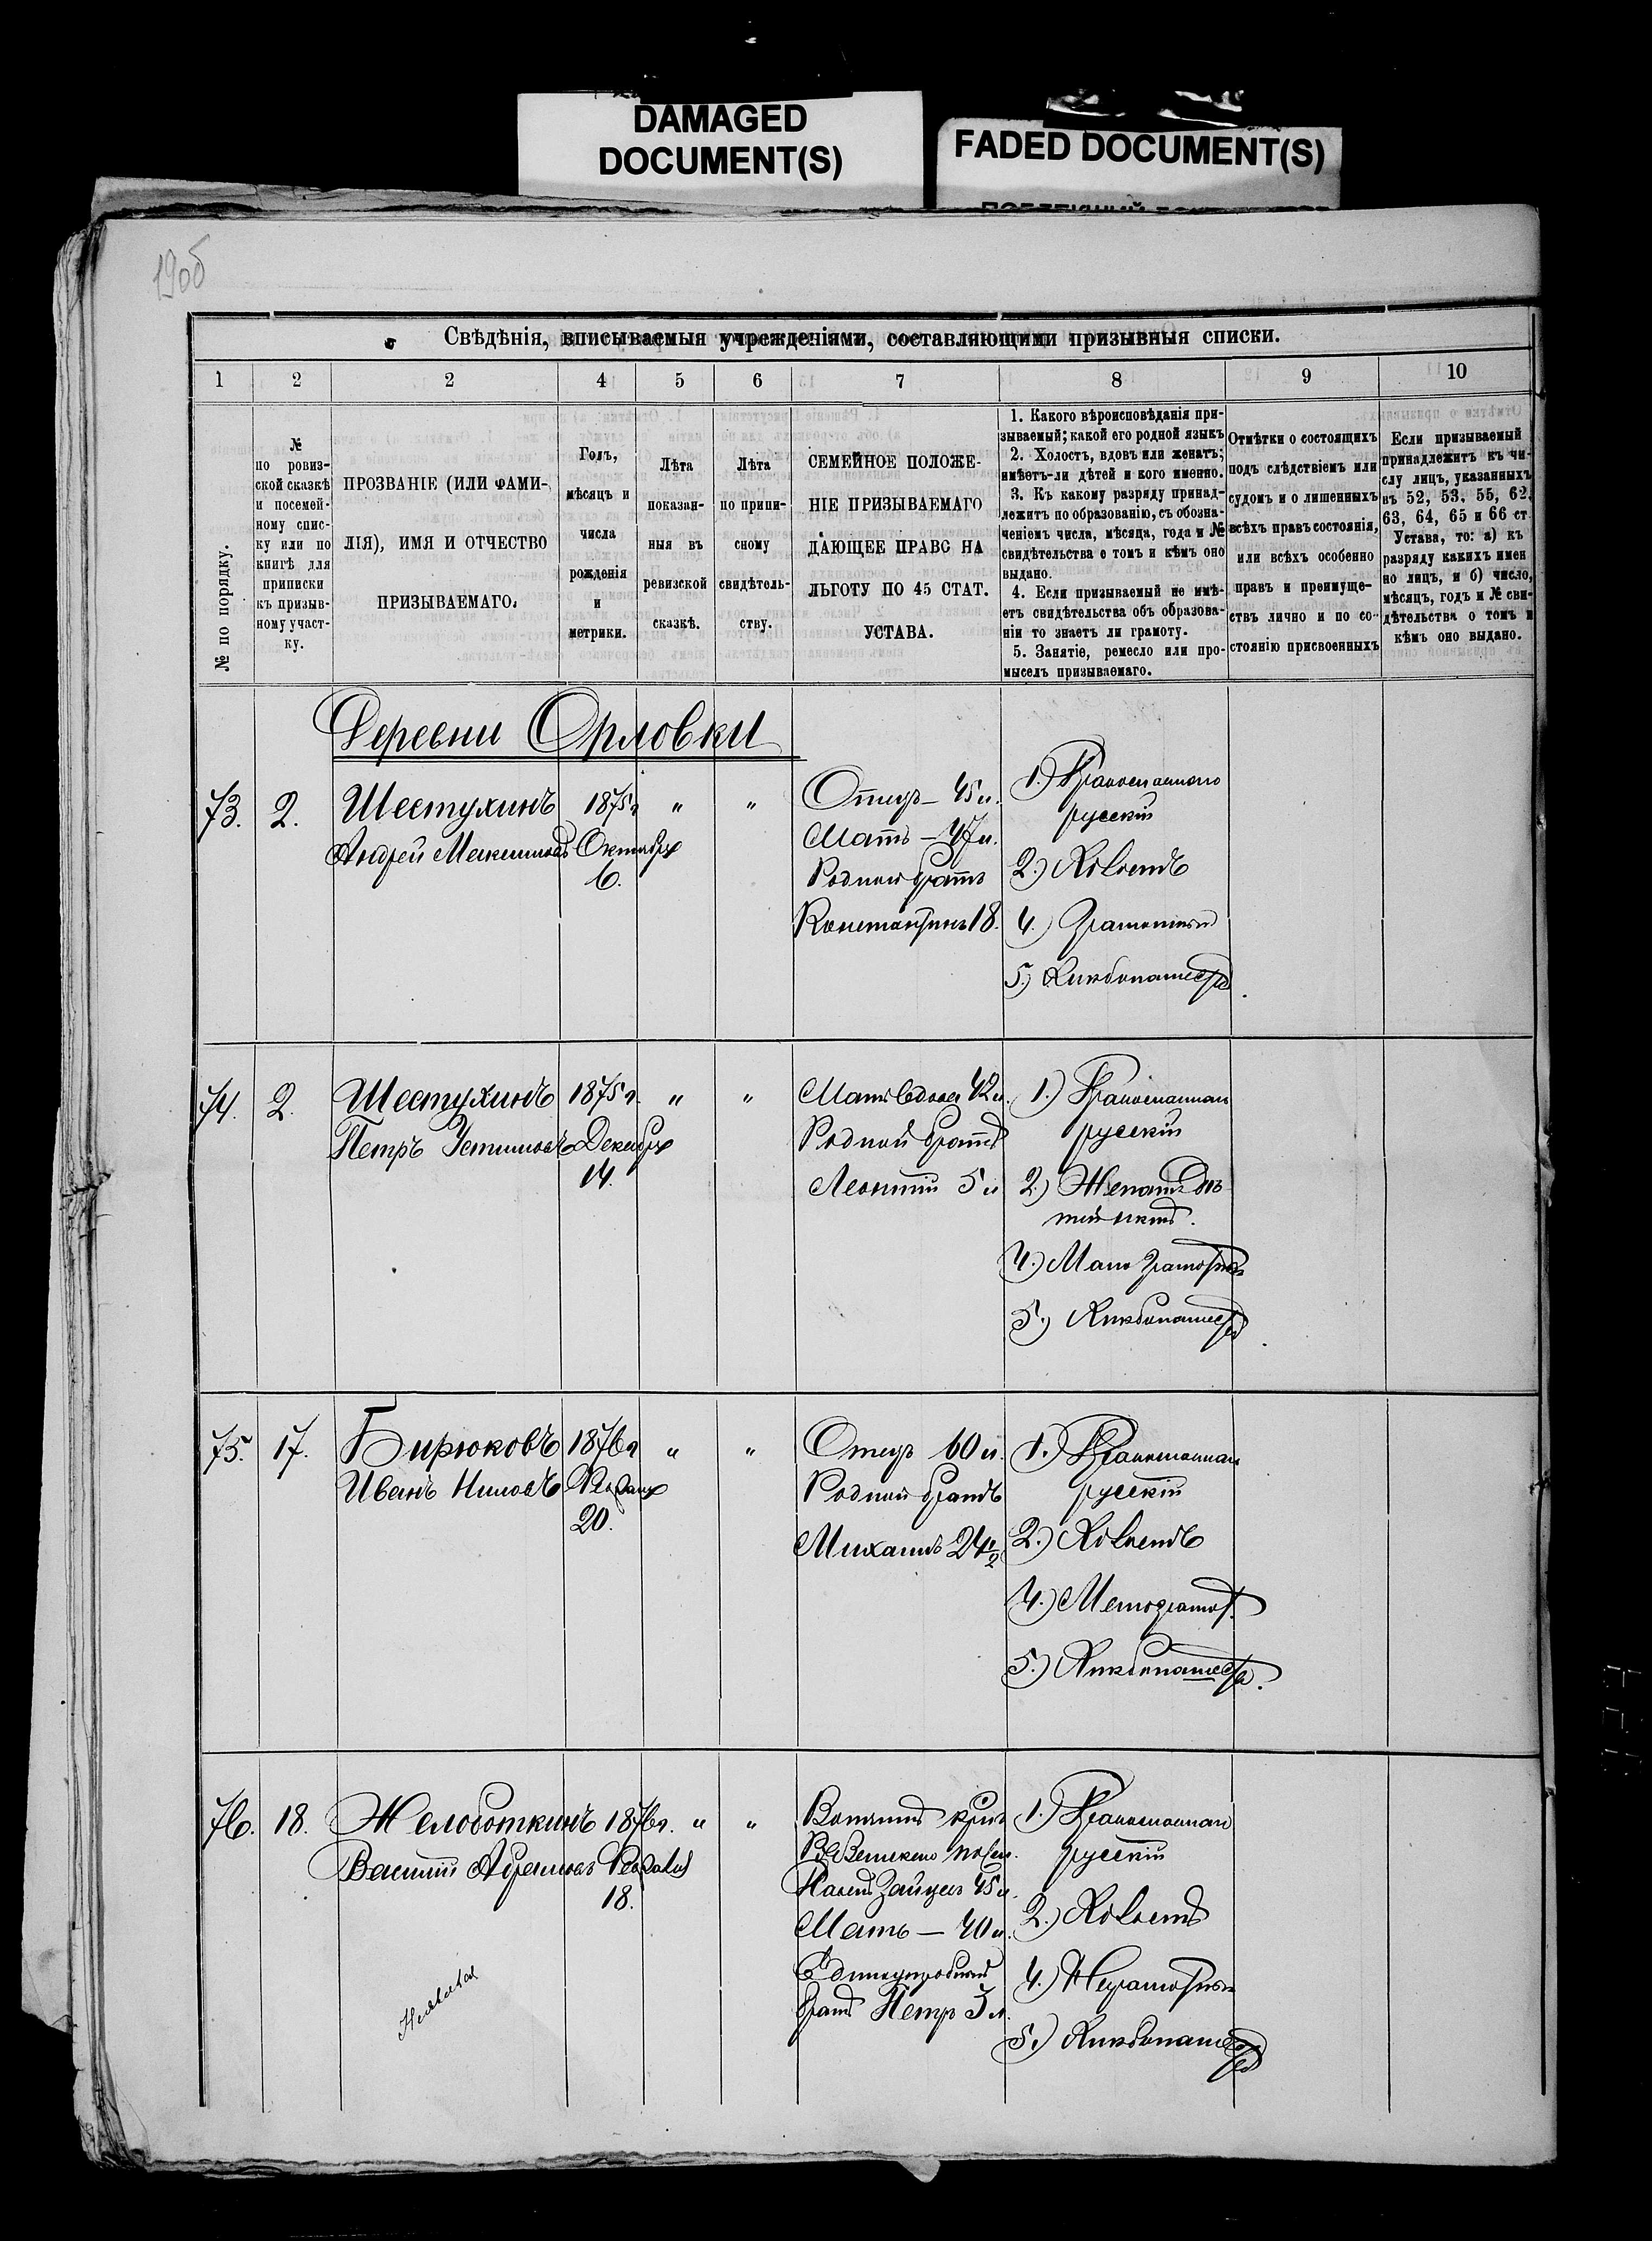 DAMAGED
DOCUMENT(S)
FADED DOCUMENT(S)
Свѣдѣнія, вписываемыя учрежденіями, составляющими призывныя списки.
1 2 2 4 5 6 7 8 9 10
№ по порядку.
№
по ровиз-
ской сказкѣ
и посемей-
ному спис-
ку или по
книгѣ для
приписки
къ призыв-
ному участ-
ку.
ПРОЗВАНІЕ (ИЛИ ФАМИ-
ЛІЯ), ИМЯ И ОТЧЕСТВО
ПРИЗЫВАЕМАГО.
Годъ,
мѣсяцъ и
числа
рожденія
и
метрики.
Лѣта
показан-
ныя въ
ревизской
сказкѣ.
Лѣта
по припи-
сному
свидѣтель-
ству.
СЕМЕЙНОЕ ПОЛОЖЕ-
НІЕ ПРИЗЫВАЕМАГО
ДАЮЩЕЕ ПРАВО НА
ЛЬГОТУ ПО 45 СТАТ.
УСТАВА.
1. Какого вѣроисповѣданія при-
зываемый; какой его родной языкъ
2. Холостъ, вдовъ или женатъ;
имѣетъ-ли дѣтей и кого именно.
3. Къ какому разряду принад-
лежитъ по образованію, съ обозна-
ченіемъ числа, мѣсяца, года и №
свидѣтельства о томъ и кѣмъ оно
выдано.
4. Если призываемый не имѣ-
етъ свидѣтельства объ образова-
ніи то знаетъ ли грамоту.
5. Занятіе, ремесло или про-
мыселъ призываемаго.
Отмѣтки о состоящихъ
подъ слѣдствіемъ или
судомъ и о лишенныхъ
всѣхъ правъ состоянія,
или всѣхъ особенно
правъ и преимуще-
ствъ лично и по со-
стоянію присвоенныхъ
Если призываемый
принадлежитъ къ чи-
слу лицъ, указанныхъ
въ 52, 53, 55, 62,
63, 64, 65 и 66 ст
Устава, то: а) къ
разряду какихъ имен
но лицъ, и б) число,
мѣсяцъ, годъ и № сви-
дѣтельства о томъ и
кѣмъ оно выдано.
Деревни Орловки
73. 2. Шестухинъ 1875г " "
Андрей Максимовъ Октября
6.
Отецъ – 45 л.
Мать – 47 л.
Родной братъ
Константинъ 18.
1.)
русскій
2.) Холостъ
4.) Грамотный
5.) Хлѣбопашество
74. 2. Шестухинъ 1875г. " "
Петръ Устиновъ Декабря
14.
Мать вдова 42 л.
Родной братъ
Леонтій 5 л
1.)
русскій
2.) Женатъ дѣ-
тей нѣтъ.
4.) Мало грамотный
5.) Хлѣбопашество
75. 17. Бирюковъ 1876г " "
Иванъ Ниловъ
20.
Отецъ 60 л.
Родной братъ
Михаилъ 24
1.)
русскій
2.) Холостъ
4.)
5.) Хлѣбопашество.
76. 18. Желоботкинъ 1876г. " "
Василій
18.
Зайцевъ 45 л.
Мать – 40 л.
Единоутробный
братъ Петръ 3 л.
1.)
русскій
2.) Холостъ
4.) Неграмотный
5.) Хлѣбопашество